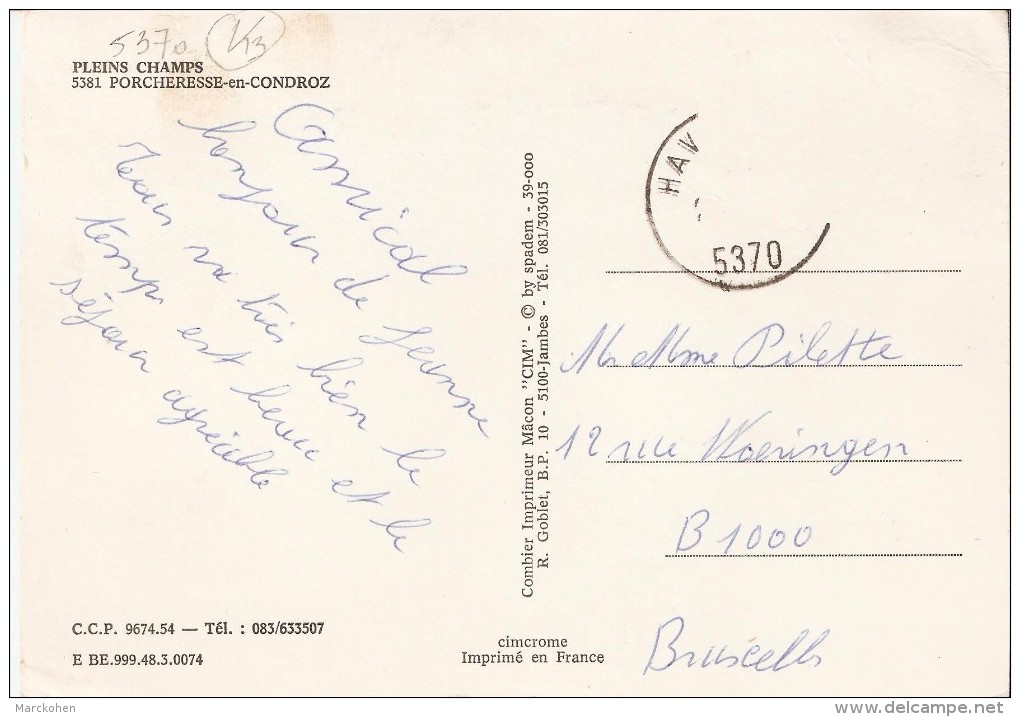 5370 K3
PLEINS CHAMPS
5381 PORCHERESSE-en-CONDROZ
Amical
bonjour de Jeanne
Tous va très bien le
temps est beau et le
séjour agréable
C.C.P. 9674.54 — Tél. : 083/633507
E BE.999.48.3.0074
Combier Imprimeur Mâcon "CIM" - © by spadem - 39-000
R. Goblet, B.P. 10 - 5100-Jambes - Tél. 081/303015
cimcrome
Imprimé en France
HAV
5370
Mr Mme Pilette
12 rue Woeringen
B 1000
Bruxelles
Marckohen
delcampe.net